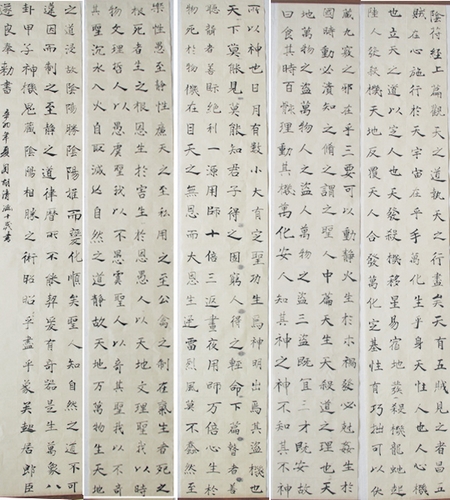 陰符經上篇觀天之道執天之行盡矣天有五賊見之者昌五
賊在心施行於天宇宙在乎手萬化生乎身天性人也人心機
也立天之道以定人也天發殺機移星易宿地發殺機龍地起
陸人發殺機天地反覆天人合發萬化定基性有巧拙可以伏
藏九竅之邪在乎三要可以動靜火生於木禍發必尅姦生於
國時動必潰知之脩之謂之聖人中篇天生天殺道之理也天
地萬物之盜萬物人之盜人萬物之盜三盜既宜三才既安故
曰食其時百骸理動其機萬化安人知其神之神不知其不神
而以神也日月有數小大有定聖功生焉神明出焉其盜機也
天下莫能見莫能知君子得之固窮人得之輕命下篇瞽者善
聽聾者善眎絕利一源用師十倍三返晝夜用師萬倍心生於
物死於物機在目天之無恩而大恩生迅雷烈風莫不蠢然至
樂性愚至靜性廉天之至私用之至公禽之制在氣生者死之
根死者生之根恩生於害害生於恩愚人以天地文理聖我以時
物文理哲人以愚虞聖我以不愚虞聖人以奇其聖我以不奇其
聖沉水入火自取滅亡自然之道靜故天地萬物生天地
之道浸故陰陽勝陰陽推而變化順矣聖人知自然之道不可
違因而制之至靜之道律曆所不能契爰有奇器是生萬象八
卦甲子神機鬼藏陰陽相勝之術昭昭乎盡乎象矣起居郎臣
遂良奉勅書
辛卯年夏月胡清